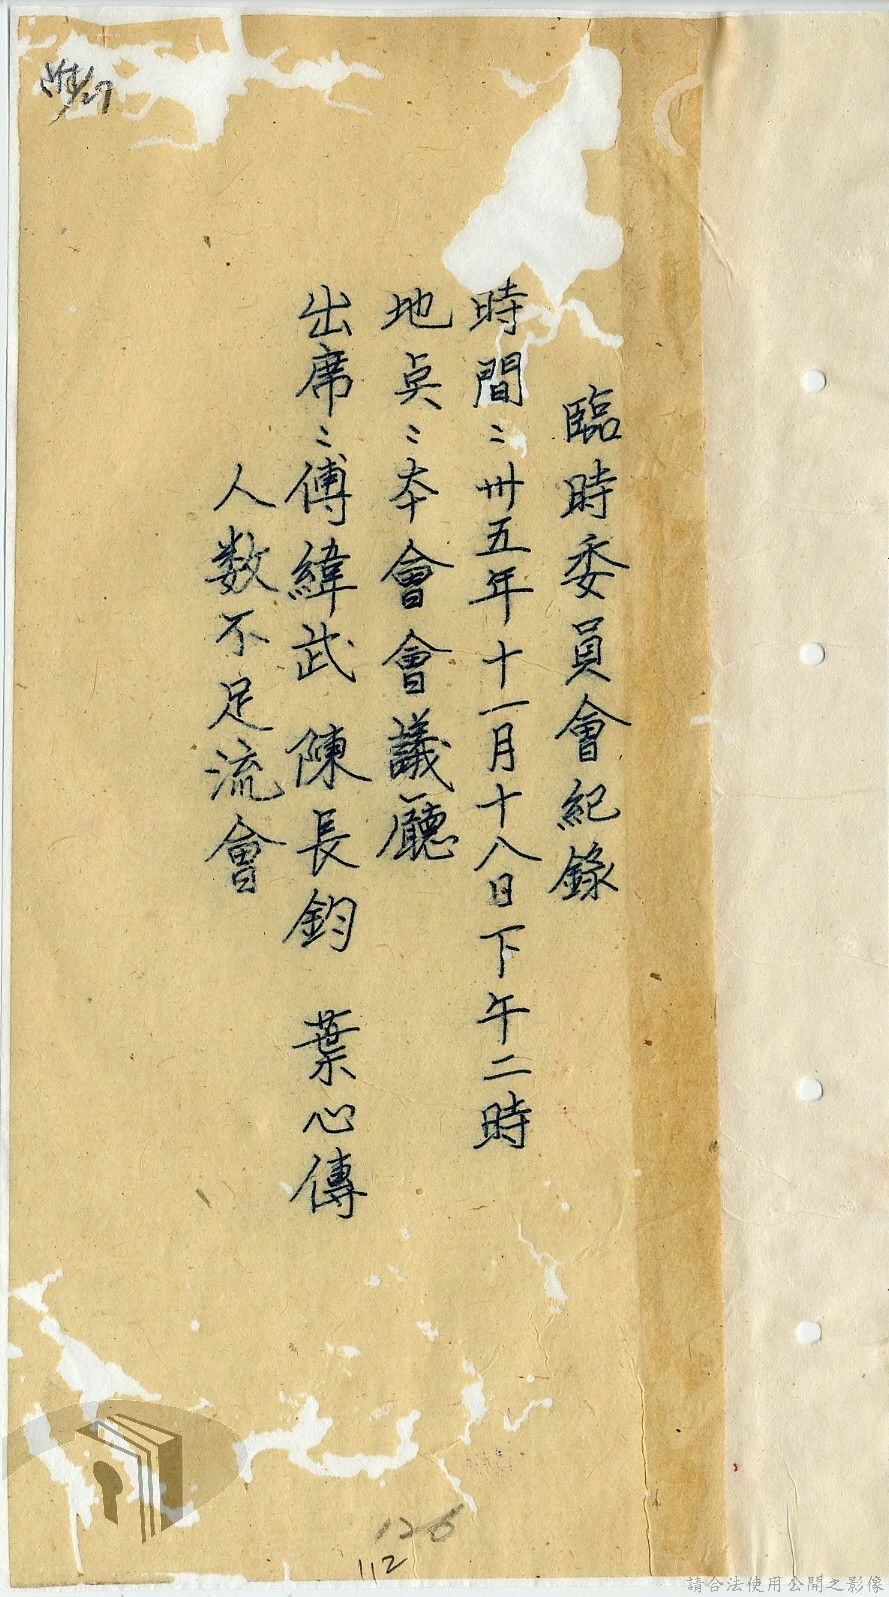 臨時委員會紀錄
時間：卅五年十一月十八日下午二時
地点：本會會議廳
出席：傅緯武 陳長鈞 葉心傳
人数不足流會
126
112
請合法使用公開之影像